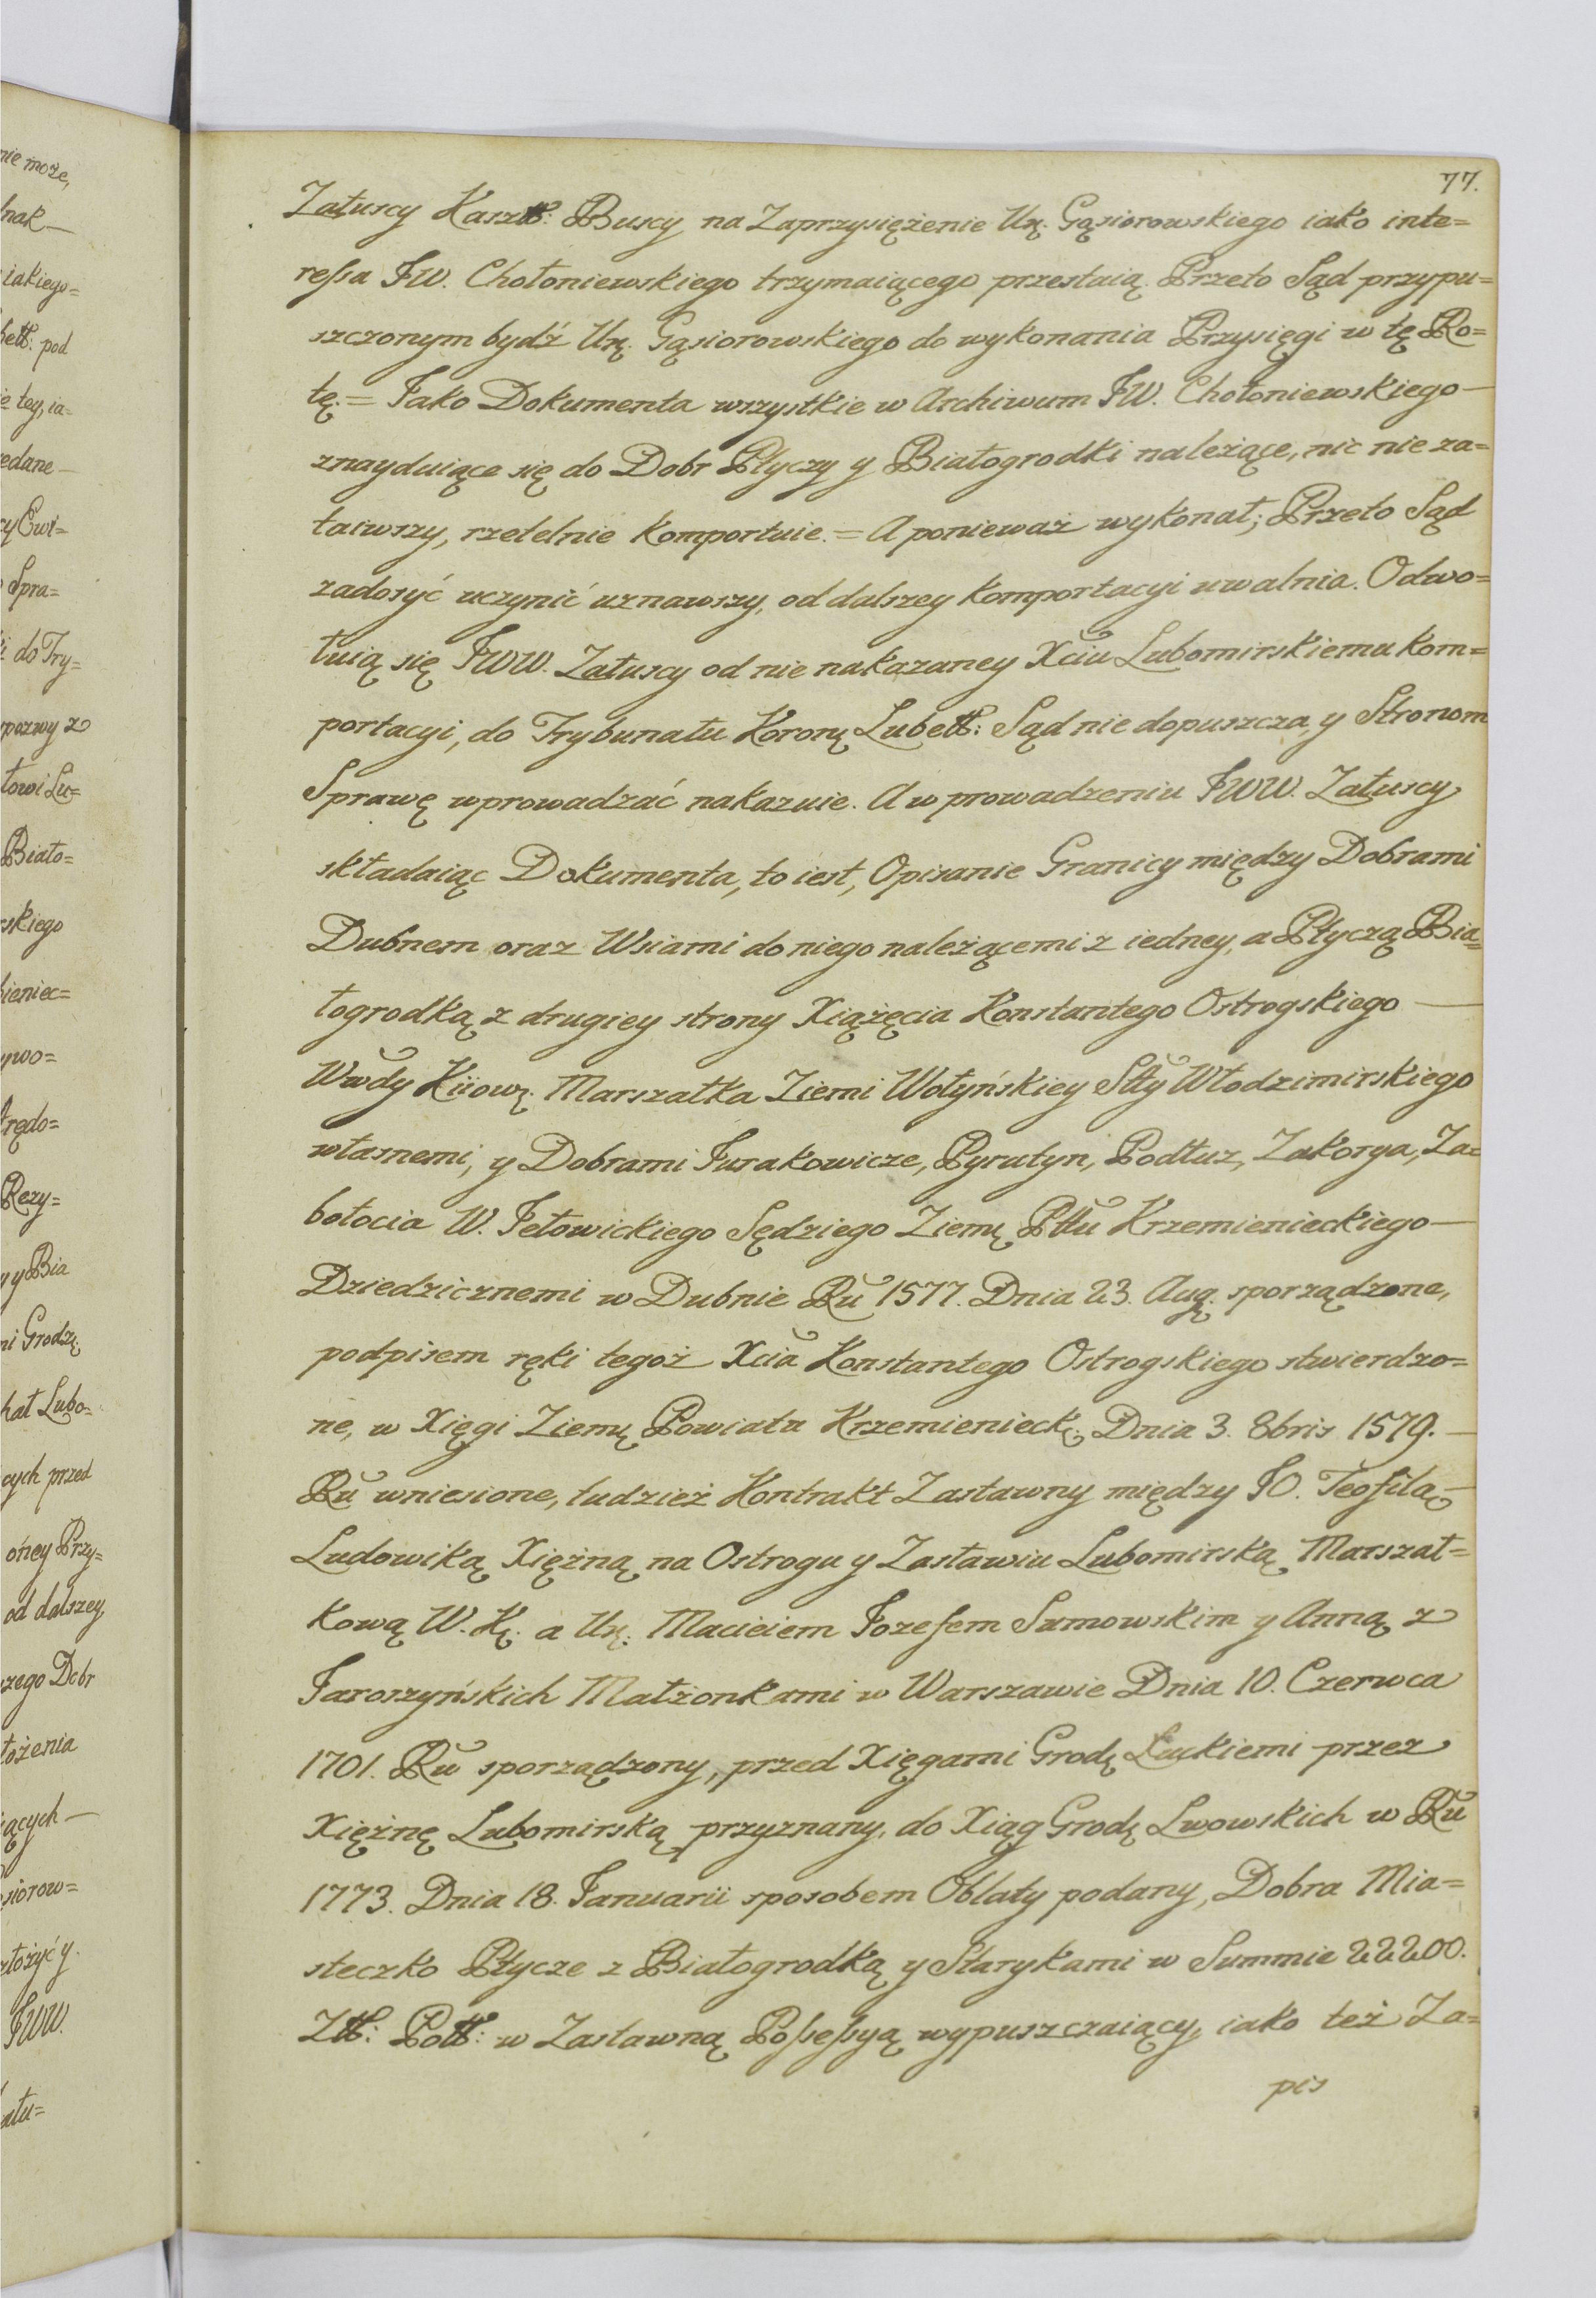 77.
Załuscy Kasztt: Buscy na Zaprzysiężenie Ur. Gąsiorowskiego iako inte=
ressa JW. Chołoniewskiego trzymaiącego przestaią. Przeto Sąd przypu=
szczonym bydź Ur. Gąsiorowskiego do wykonania Przysięgi w tę Ro=
tę. = Jako Dokumenta wszystkie w Archiwum JW. Chołoniewskiego —
znayduiące się do Dobr Płyczy y Białogrodki należące, nic nie za=
taiwszy, rzetelnie komportuie. = A ponieważ wykonał; Przeto Sąd
zadosyć uczynić uznawszy, od dalszey komportacyi uwalnia. Odwo=
łuią się JWW. Załuscy od nie nakazaney Xciu Lubomirskiemu kom=
portacyi, do Trybunału Koron Lubett: Sąd nie dopuszcza, y Stronom
Sprawę wprowadzać nakazuie. A w prowadzeniu JWW. Załuscy
składaiąc Dokumenta, to iest, Opisanie Granicy między Dobrami
Dubnem oraz Wsiami do niego należącemi z iedney, a Płyczą Bia=
łogrodką z drugiey strony Xiążęcia Konstantego Ostrogskiego —
Wwdy Kiiow. Marszałka Ziemi Wołyńskiey Stty Włodzimirskiego
własnemi, y Dobrami Turakowicze, Pyrutyn, Podłuz, Zakorya, Za=
botocia W. Jełowickiego Sędziego Ziem Pttu Krzemienieckiego —
Dziedzicznemi w Dubnie Ru 1577. Dnia 23. Aug. sporządzone,
podpisem ręki tegoż Xcia Konstantego Ostrogskiego stwierdzo=
ne, w Xięgi Ziem Powiatu Krzemienieck. Dnia 3. 8bris 1579. —
Ru wniesione, tudzież Kontrakt Zastawny między JO. Teofilą —
Ludowiką Xiężną na Ostrogu y Zasławiu Lubomirską Marszał=
kową W. K. a Ur. Macieiem Jozefem Sumowskim y Anną z
Jaroszyńskich Małżonkami w Warszawie Dnia 10. Czerwca
1701. Ru sporządzony, przed Xięgami Grod Łuckiemi przez
Xiężnę Lubomirską przyznany, do Xiąg Grod Lwowskich w Ru
1773. Dnia 18. Januarii sposobem Oblaty podany, Dobra Mia=
steczko Płycze z Białogrodką y Starykami w Summie 22200.
Ztt: Pott: w Zastawną Possessyą wypuszczaiący, iako też Za=
pis